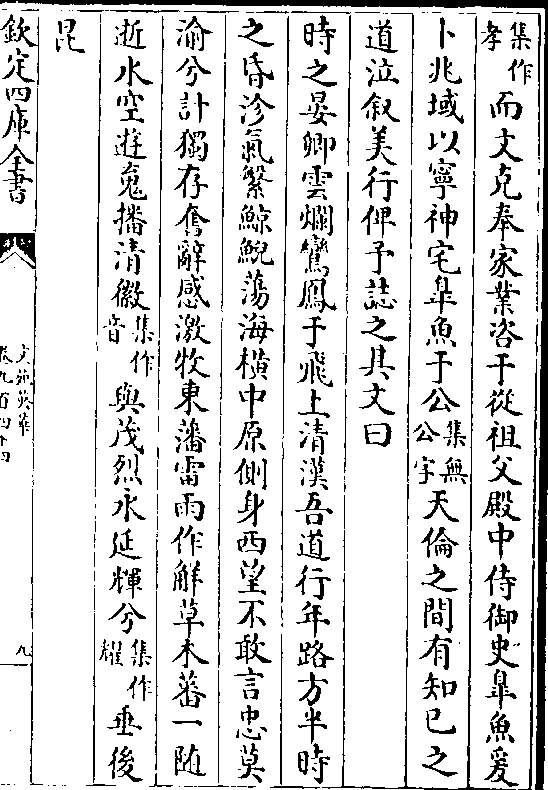 集作孝而文克奉家業咨于從祖父殿中侍御史臯魚爰
卜兆域以寧神宅臯魚于公集無公字天倫之間有知已之
道泣叙美行俾予誌之其文曰
時之晏卿雲爛鸞鳳于飛上清漢吾道行年路方半時
之昏沴氣繁鯨鯢蕩海横中原側身西望不敢言忠莫
渝兮計獨存奮辭感激牧東藩雷雨作解草木蕃一随
逝水空遊䰟播清徽集作音與茂烈永延輝兮集作耀垂後
昆
欽定四庫全書
文苑英華
卷九百四十四
九